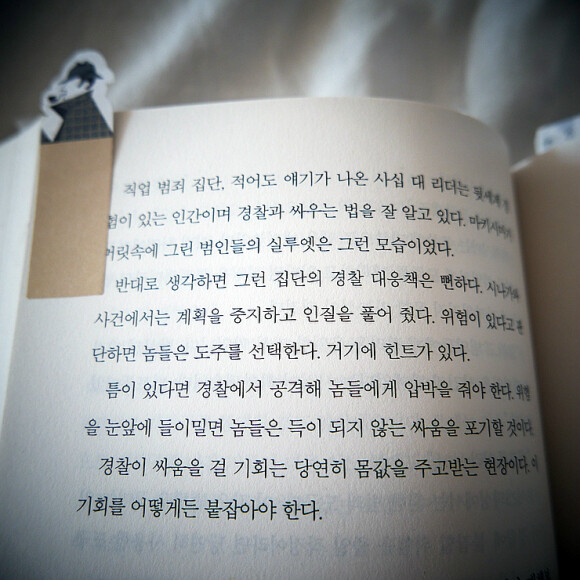 직업 범죄 집단. 적어도 얘기가 나온 사십 대 리더는 뒷세계
험이 있는 인간이며 경찰과 싸우는 법을 잘 알고 있다. 마키시마가
머릿속에 그린 범인들의 실루엣은 그런 모습이었다.
반대로 생각하면 그런 집단의 경찰 대응책은 뻔하다. 시나가와
사건에서는 계획을 중지하고 인질을 풀어 줬다. 위험이 있다고 판
단하면 놈들은 도주를 선택한다. 거기에 힌트가 있다.
틈이 있다면 경찰에서 공격해 놈들에게 압박을 줘야 한다. 위험
을 눈앞에 들이밀면 놈들은 득이 되지 않는 싸움을 포기할 것이다.
경찰이 싸움을 걸 기회는 당연히 몸값을 주고받는 현장이다. 이
기회를 어떻게든 붙잡아야 한다.